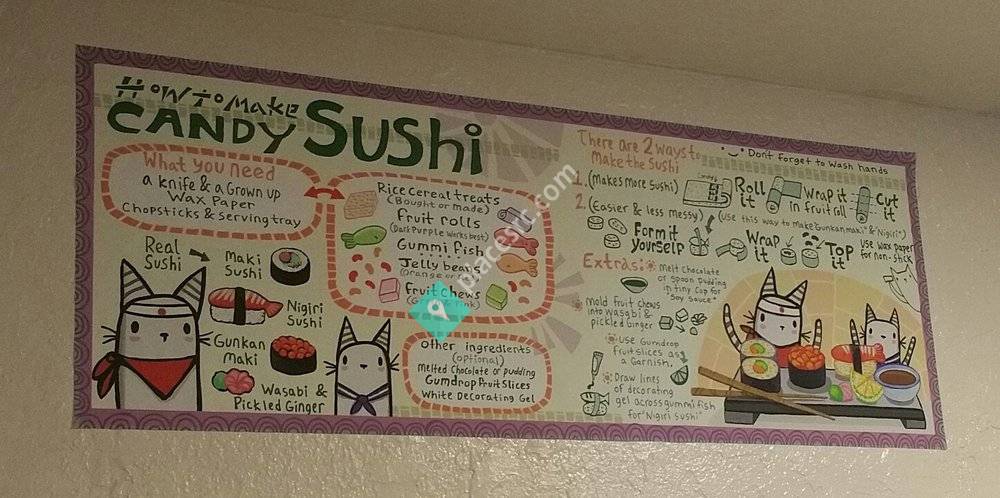 How to Make
CANDY Sushi
What you need
a knife & a Grown up
Wax Paper
Chopsticks & serving tray
Rice cereal treats
(Bought or made)
fruit rolls
(Dark Purple works best)
Gummi fish
Jelly beans
(orange or
Fruit chews
Real
Sushi
Maki
Sushi
Nigiri
Sushi
Gunkan
Maki
Wasabi &
Pickled Ginger
other ingredients
(optional)
Melted Chocolate or pudding
Gumdrop Fruit Slices
White Decorating Gel
There are 2 ways to
Make the Sushi
Don't forget to wash hands
1. (Makes more sushi)
Roll
it
Wrap it
in fruit roll
Cut
it
2. (Easier & less messy)
(use this way to make "Gunkan maki" & "Nigiri")
Form it
yourself
Wrap
it
Top
it
use wax paper
for non-stick
Extras:
Melt chocolate
or spoon pudding
in tiny cup for
"Soy sauce"
Mold fruit chews
into wasabi &
pickled ginger
use Gumdrop
fruit slices as
a Garnish.
Draw lines
of decorating
gel across gummi fish
for "Nigiri Sushi"
placesttc.com